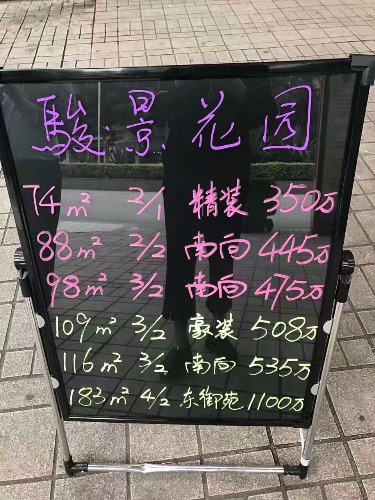 駿景花园
74m² 2/1 精装 350万
88m² 2/2 南向 445万
98m² 3/2 南向 475万
109m² 3/2 豪装 508万
116m² 3/2 南向 535万
183m² 4/2 东御苑 1100万